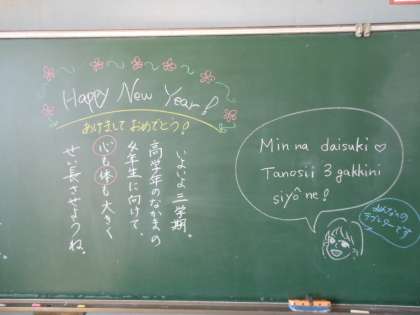 Happy New Year!
あけましておめでとう!
いよいよ三学期。
高学年のなかまの
4年生に向けて、
心も体も大きく
せい長させようね。
Min na daisuki♡
Tanosii 3 gakkini
siyô ne!